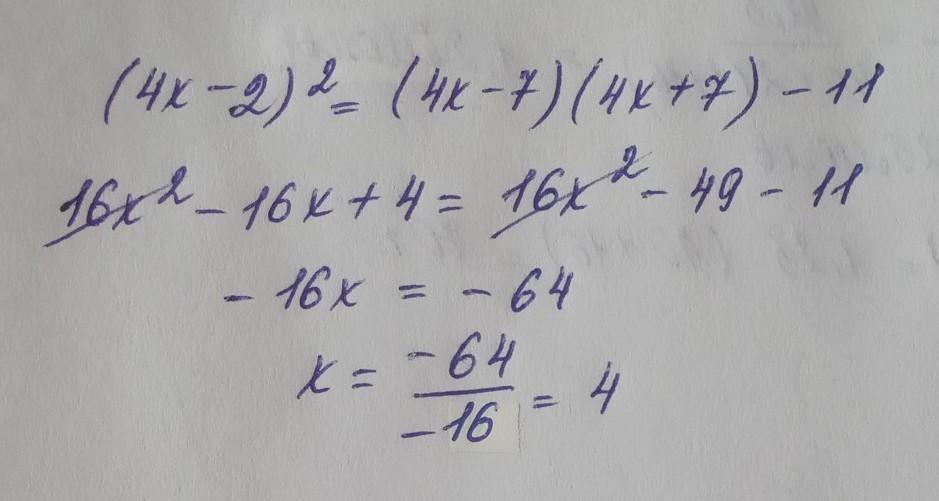 (4x-2)² = (4x-7)(4x+7)-11
16x² - 16x + 4 = 16x² - 49 - 11
- 16x = - 64
x = -64/-16 = 4